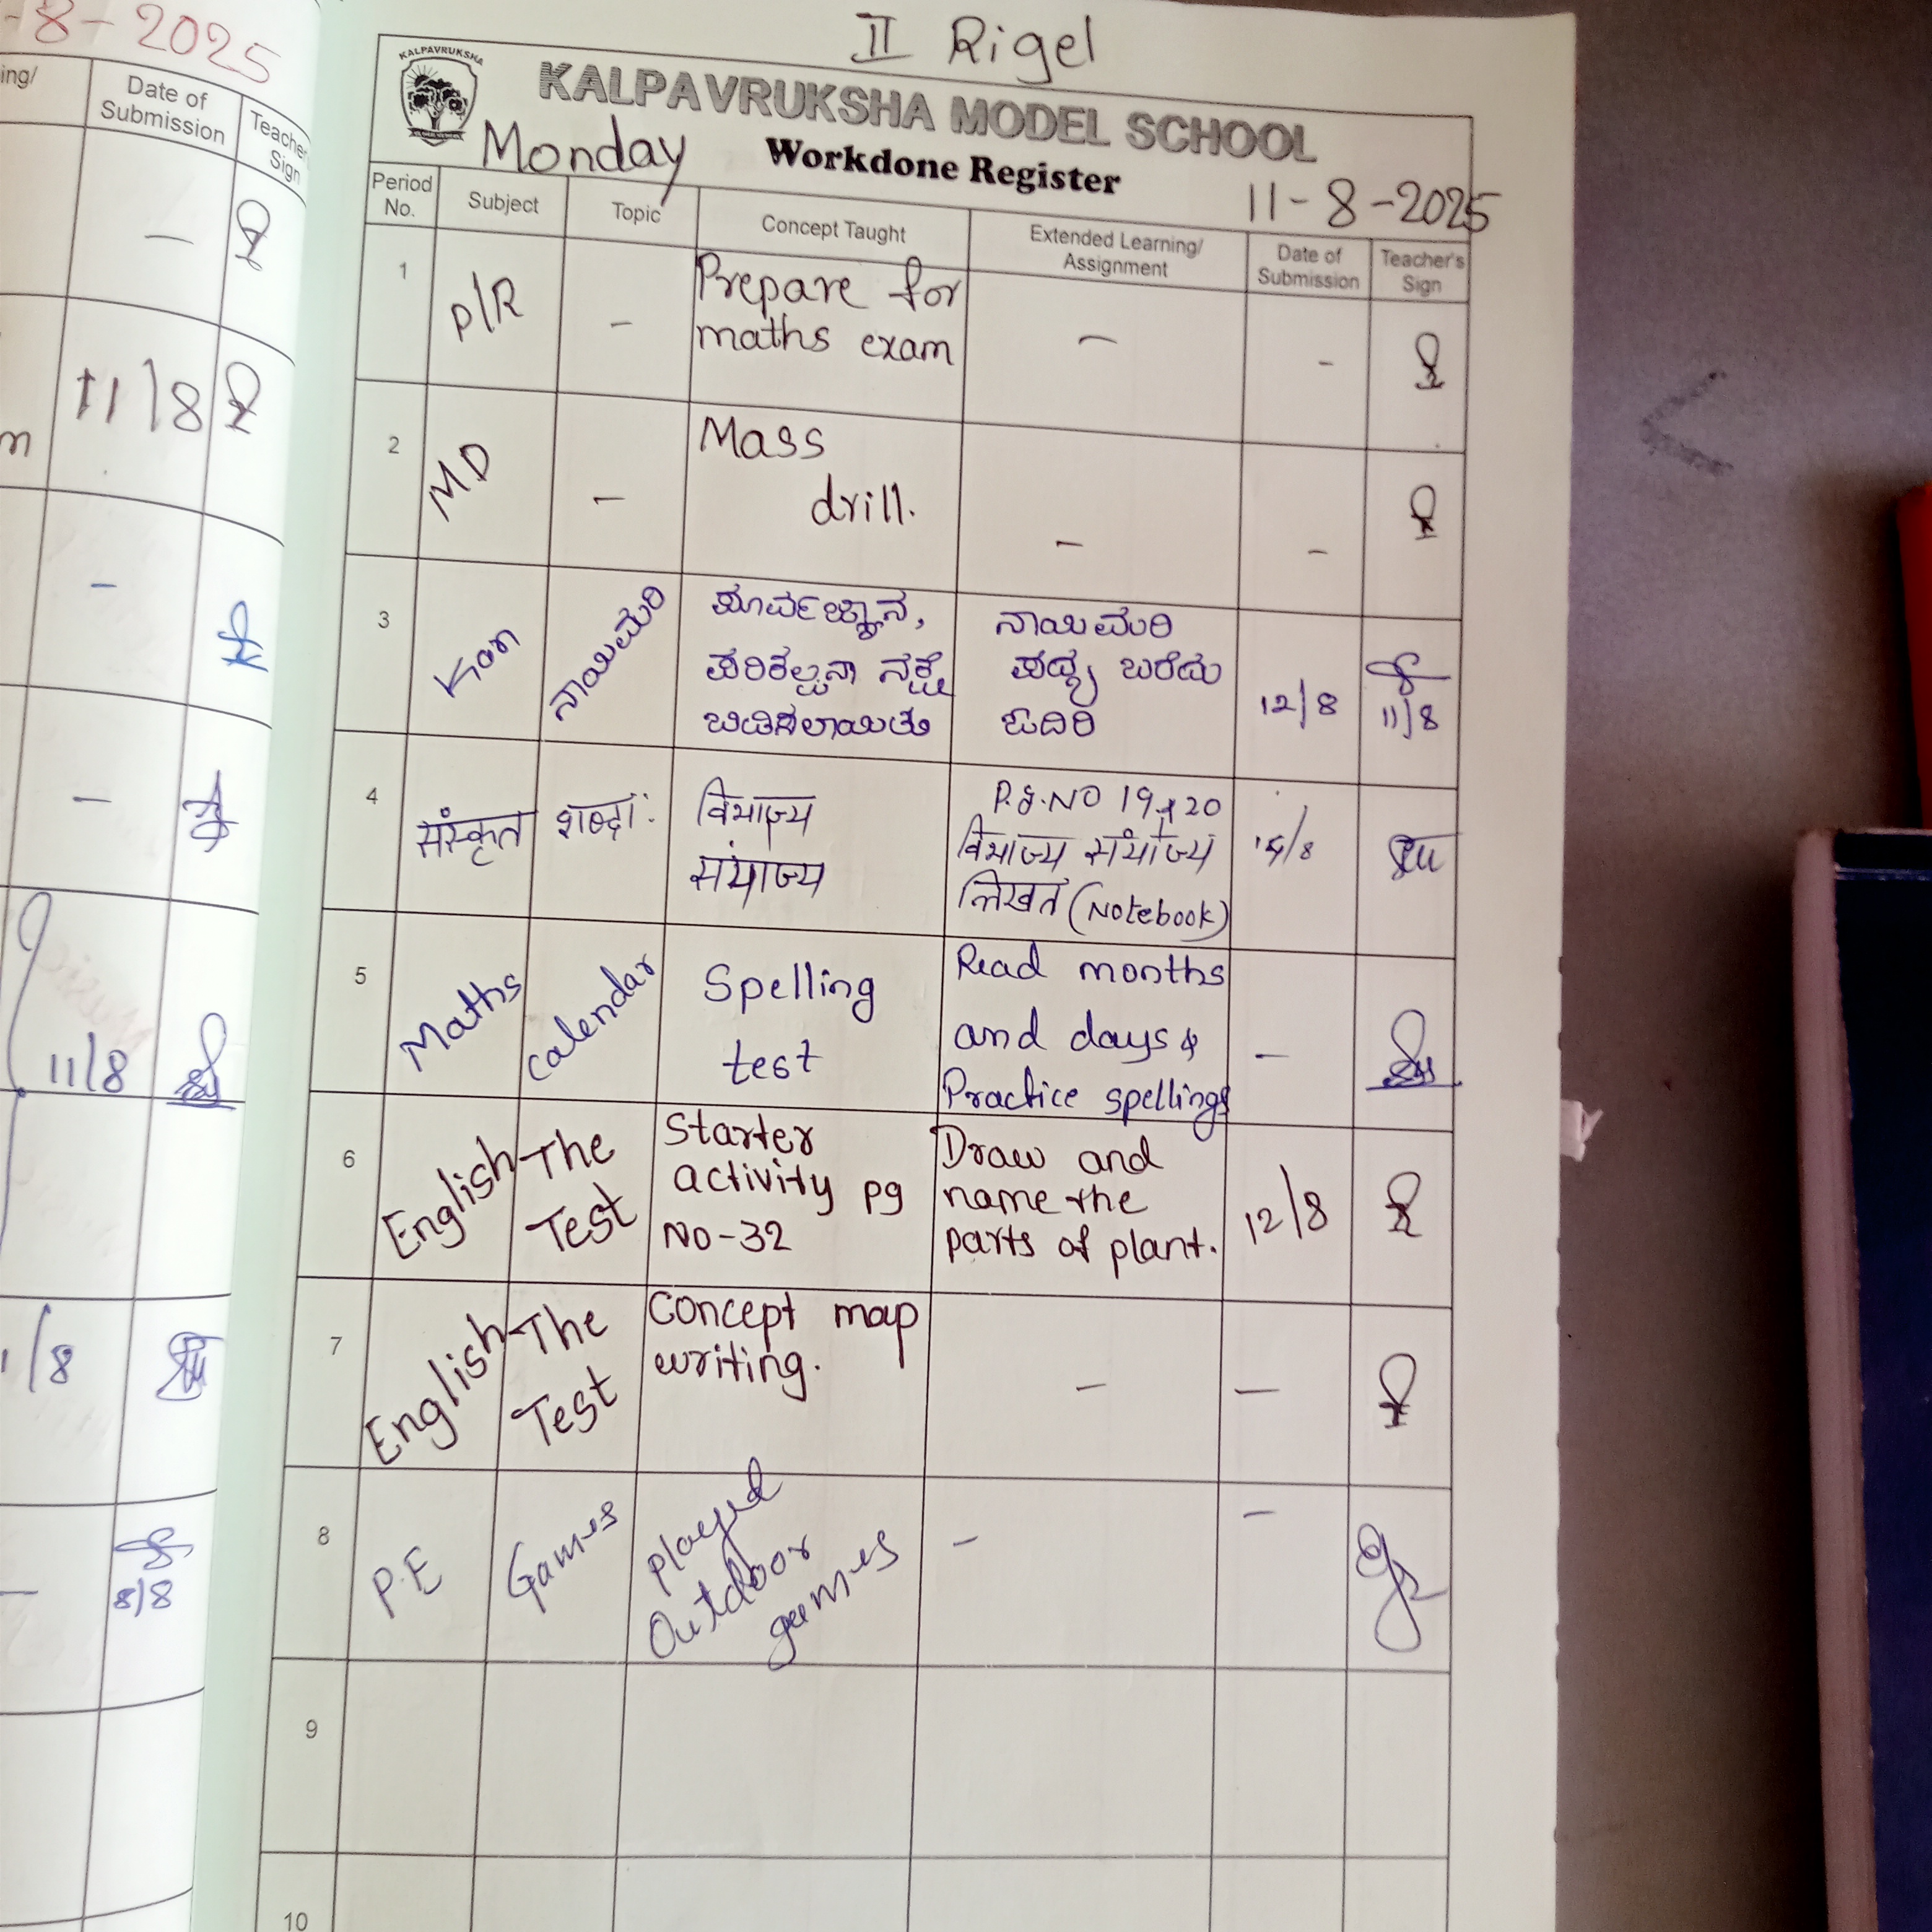 -8-2025
ing/
Date of
Submission
Teacher's
Sign
11/8
m
11/8
1/8
8/8
II Rigel
KALPAVRUKSHA
KALPAVRUKSHA MODEL SCHOOL
Monday
Workdone Register
11-8-2025
Period No. Subject Topic Concept Taught Extended Learning/ Assignment Date of Submission Teacher's Sign
1 P/R - Prepare for
maths exam - -
2 MD - Mass
drill. - -
3 Kan ನಾಯಿಮರಿ ಪೂರ್ವಜ್ಞಾನ, ನಾಯಿಮರಿ
ಪರಿಕಲ್ಪನಾ ನಕ್ಷೆ ಪದ್ಯ ಬರೆದು 12/8
ಬಿಡಿಸಲಾಯಿತು ಓದಿರಿ 11/8
4 संस्कृत शब्दाः विभाज्य P.g.NO 19 & 20
संयोज्य विभाज्य संयोज्य
लिखत (Notebook)
5 Maths calendar Spelling Read months
test and days & -
Practice spellings
6 English The Starter Draw and
Test activity pg name the 12/8
No-32 parts of plant.
7 English The Concept map
Test writing. - -
8 P.E Games played - -
Outdoor
games
9
10